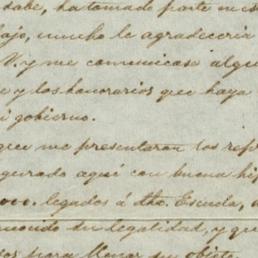 sabe, ha tomado parte en es
ajo, mucho le agradeceria
V. y me comunicase algu
e y los honorarios que haya
i gobierno.
que me presentaron los refe
gurado aquí con buena hi
000. legados á dha. Escuela, 
su legalidad, y qu
para llenar su objeto